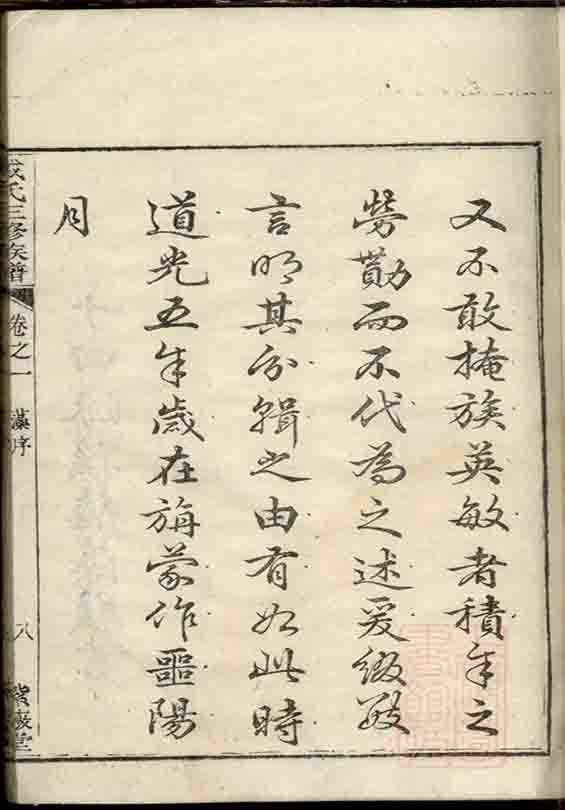 又不敢掩族英敏者積年之
勞勩而不代為之述爰綴數
言明其分輯之由有如此時
道光五年歲在旃蒙作噩陽
月
氏三修族譜 卷之一 藻序 八 紫巖堂